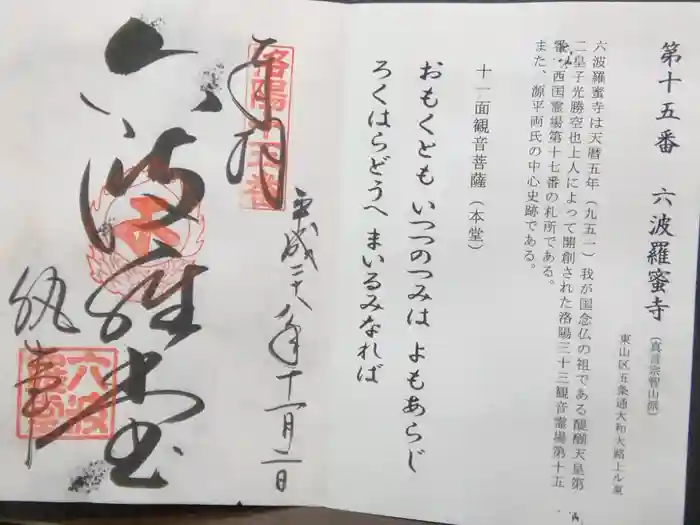 第十五番　六波羅蜜寺（真言宗智山派）
東山区五条通大和大路上ル東
六波羅蜜寺は天暦五年（九五一）我が国念仏の祖である醍醐天皇第
二皇子光勝空也上人によって開創された洛陽三十三観音霊場第十五
番、西国霊場第十七番の札所である。
また、源平両氏の中心史跡である。
十一面観音菩薩（本堂）
おもくとも　いつつのつみは　よもあらじ
ろくはらどうへ　まいるみなれば
平成二十八年十一月二日
奉拝
洛陽十五番
六波羅堂
六波